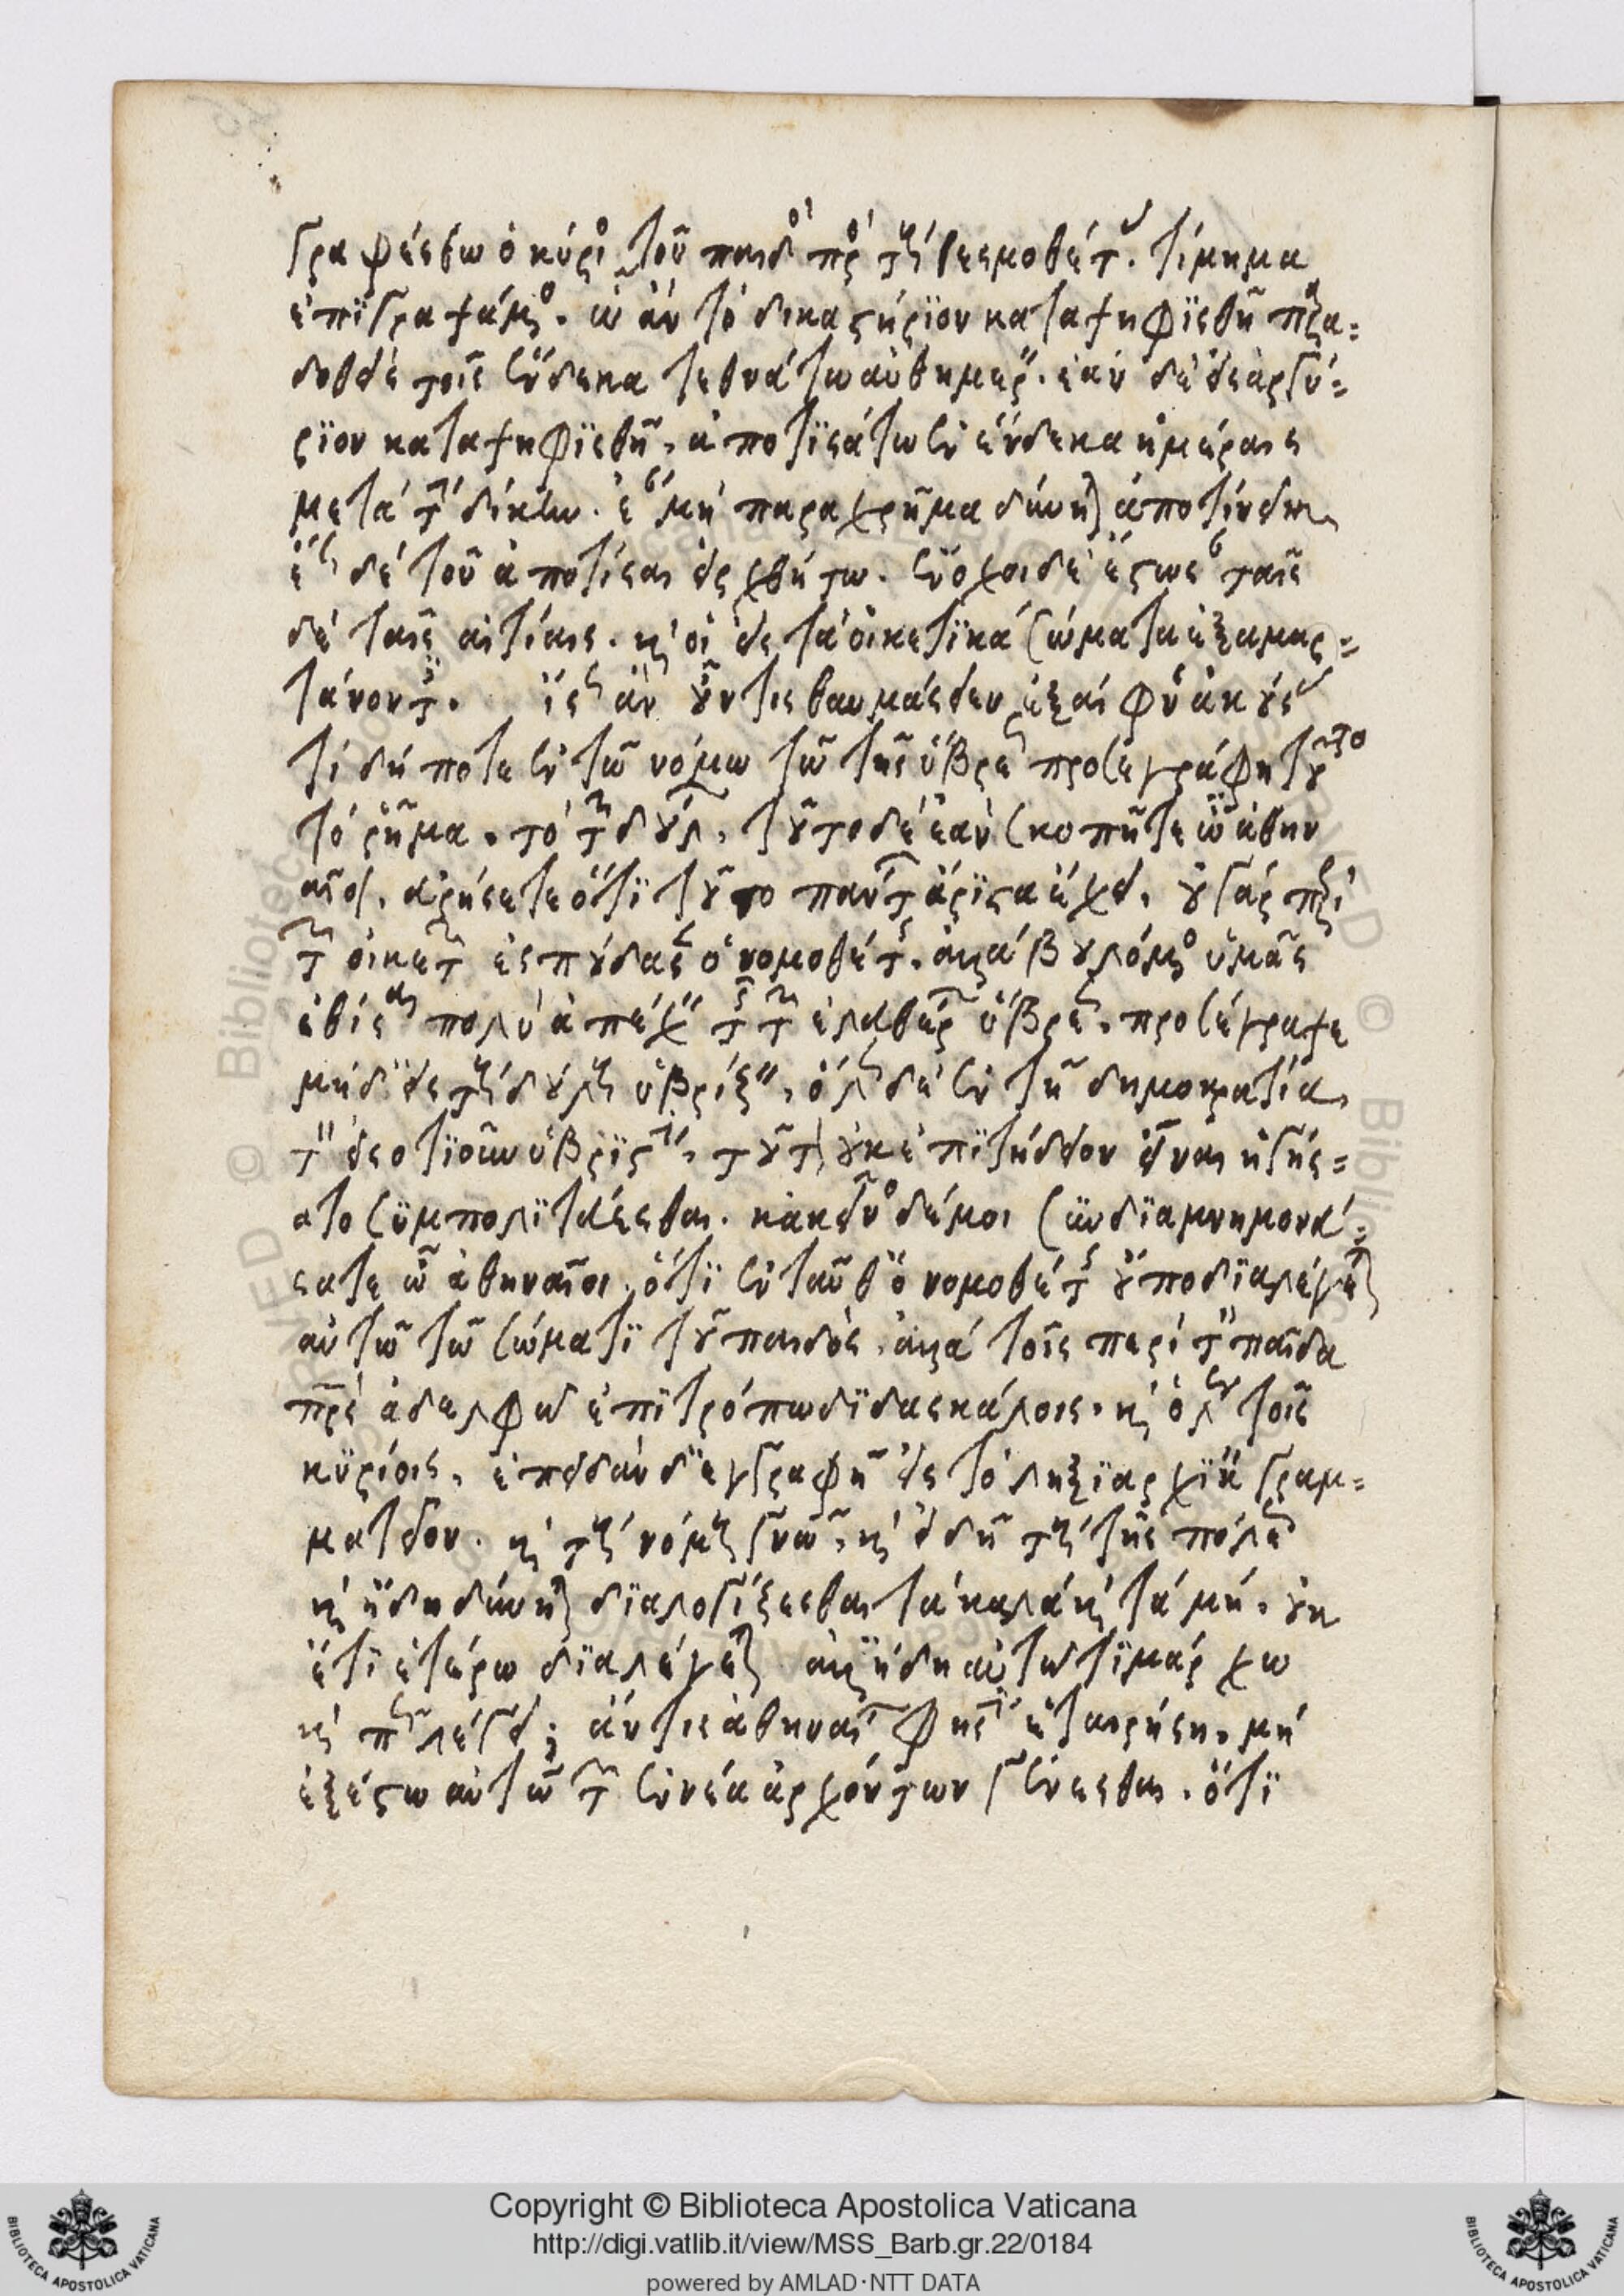 γραφέσθω ὁ κύριος τοῦ παιδὸς πρὸς τοὺς θεσμοθέτας. τίμημα
ἐπιγραψάμενος. ὧ ἂν τὸ δικαστήριον καταψηφισθῆ παρα=
δοθεὶς τοῖς ἕνδεκα τεθνάτω αὐθημερόν. ἐὰν δὲ εἰς ἀργύ=
ριον καταψηφισθῆ, ἀποτισάτω ἐν ἕνδεκα ἡμέραις
μετὰ τὴν δίκην. ἐὰν μὴ παραχρῆμα δύνηται ἀποτίνειν,
ἕως δὲ τοῦ ἀποτίσαι εἰρχθήτω. ἔνοχοι δὲ ἔστωσαν ταῖσ
δὲ ταῖς αἰτίαις. καὶ οἱ εἰς τὰ οἰκετικὰ σώματα ἐξαμαρ=
τάνοντες. ἴσως ἂν οὖν τις θαυμάσειεν ἐξαίφνης ἀκούσας
τί δή ποτε ἐν τῶ νόμω τῶ τῆς ὕβρεως προσεγράφη τοῦτο
τὸ ῥῆμα. τὸ τῶν δούλων, τοῦτο δὲ ἐὰν σκοπῆτε ὦ ἀθην
αῖοι, εὑρήσετε ὅτι τοῦτο πάντων ἄριστα ἔχει. οὐ γὰρ περὶ
τῶν οἰκετῶν ἐσπούδασεν ὁ νομοθέτης. ἀλλὰ βουλόμενος ὑμᾶς
ἐθίσαι πολὺ ἀπέχειν τῆς τῶν ἐλευθέρων ὕβρεως, προσέγραψε
μηδ' εἰς τοὺς δούλους ὑβρίζειν, ὅλως δὲ ἐν τῆ δημοκρατία,
τὸν εἰς ὁτιοῦν ὑβριστὴν, τοῦτον οὐκ ἐπιτήδειον εἶναι ἡγήσ=
ατο συμπολιτεύεσθαι. κἀκεῖνο δέ μοι συνδιαμνημονεύ=
σατε ὦ ἀθηναῖοι, ὅτι ἐνταῦθα ὁ νομοθέτης οὔπω διαλέγεται
αὐτῶ τῶ σώματι τοῦ παιδὸς, ἀλλὰ τοῖς περὶ τὸν παῖδα
πατρὶ ἀδελφῶ ἐπιτρόπω διδασκάλοις. καὶ ὅλως τοῖς
κυρίοις, ἐπειδὰν δ' ἐγγραφῆ εἰς τὸ ληξιαρχικὸν γραμ=
ματεῖον. καὶ τοὺς νόμους γνῶ, καὶ εἰδῆ τοὺς τῆς πόλεως
καὶ ἤδη δύνηται διαλογίζεσθαι τὰ καλὰ καὶ τὰ μὴ. οὐκ
ἔτι ἑτέρω διαλέγεται ἀλλ' ἤδη αὐτῶ τιμάρχω
καὶ πῶς λέγει; ἄν τις ἀθηναίων φησὶν ἑταιρήση, μὴ
ἐξέστω αὐτῶ τῶν ἐννέα ἀρχόντων γενέσθαι. ὅτι
Copyright © Biblioteca Apostolica Vaticana
http://digi.vatlib.it/view/MSS_Barb.gr.22/0184
powered by AMLAD·NTT DATA